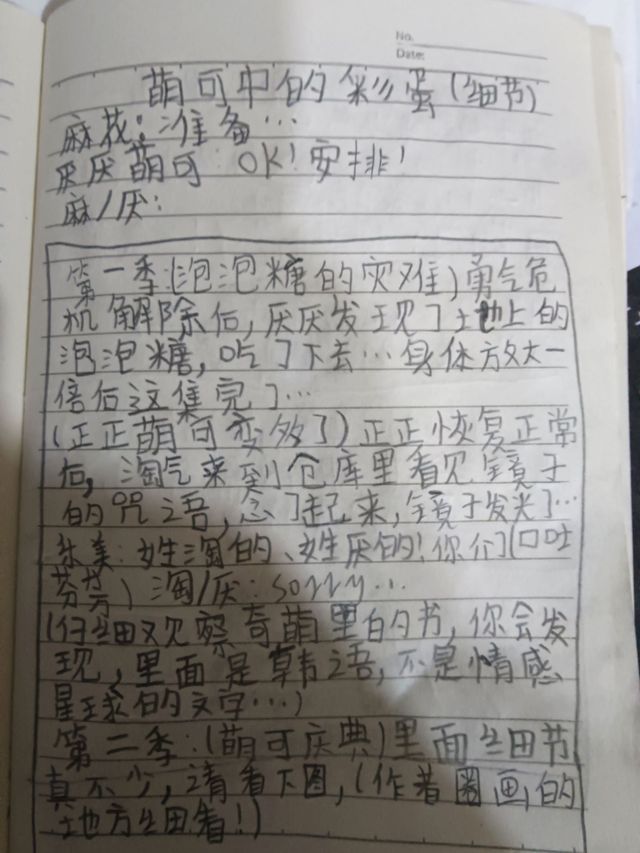 No.
Date:
萌可中的彩蛋(细节)
麻花:准备…
厌厌萌可 OK!安排!
麻/厌:
第一季:(泡泡糖的灾难)勇气危
机解除后,厌厌发现了土地上的
泡泡糖,吃了下去…身体放大一
倍后这集完了…
(正正萌可变多了)正正恢复正常
后,淘气来到仓库里看见镜子
的咒语,念了起来,镜子发光了…
朱美:姓淘的、姓厌的!你们(口吐
芬芳) 淘/厌:sorry…
(仔细观察奇萌里的书,你会发
现,里面是韩语,不是情感
星球的文字…)
第二季:(萌可庆典)里面细节
真不少,请看下图,(作者圈画的
地方细看!)